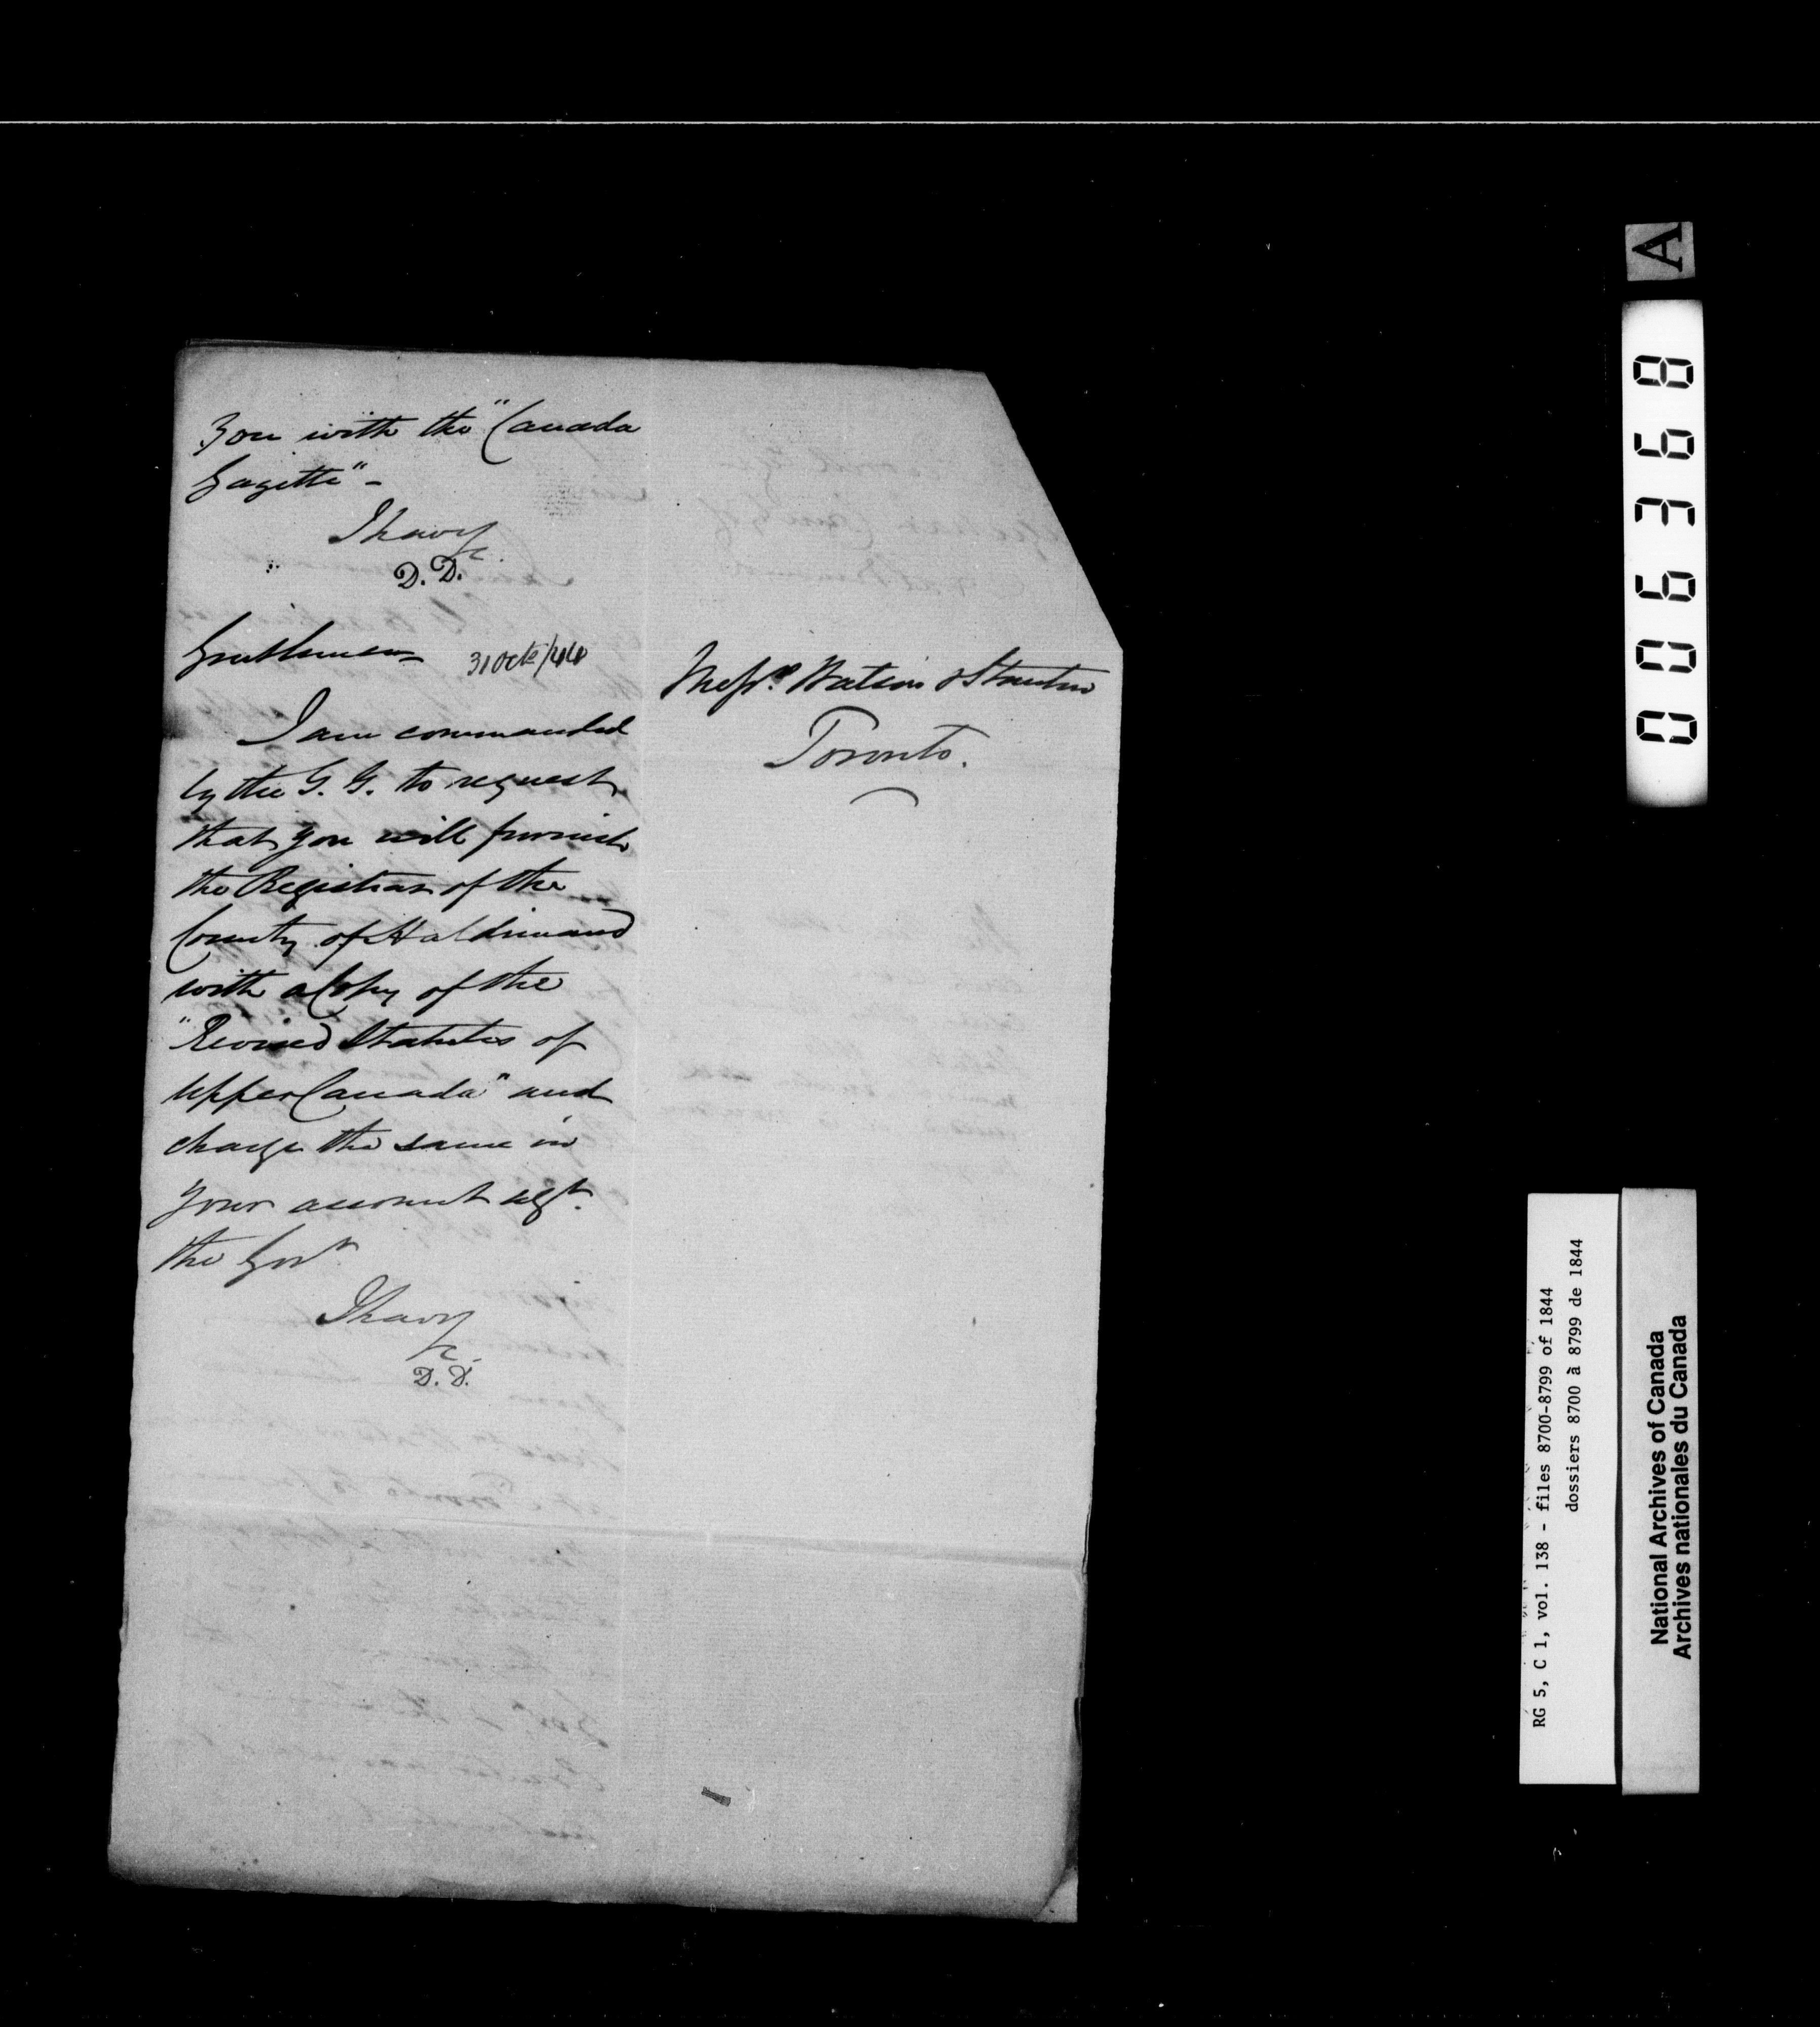 you with the "Canada
Gazette" -
I have
&c.
D. D.
Gentlemen
31 Octr/44
I am commanded
by the G. G. to request
that you will furnish
the Registrar of the
County of Haldimand
with a Copy of the
"Revised Statutes of
Upper Canada" and
charge the same in
your account agt.
the Govt.
I have
&c.
D. D.
Messrs. Watson & Stanton
Toronto.
A
006368
RG 5, C 1, vol. 138 - files 8700-8799 of 1844
dossiers 8700 à 8799 de 1844
National Archives of Canada
Archives nationales du Canada